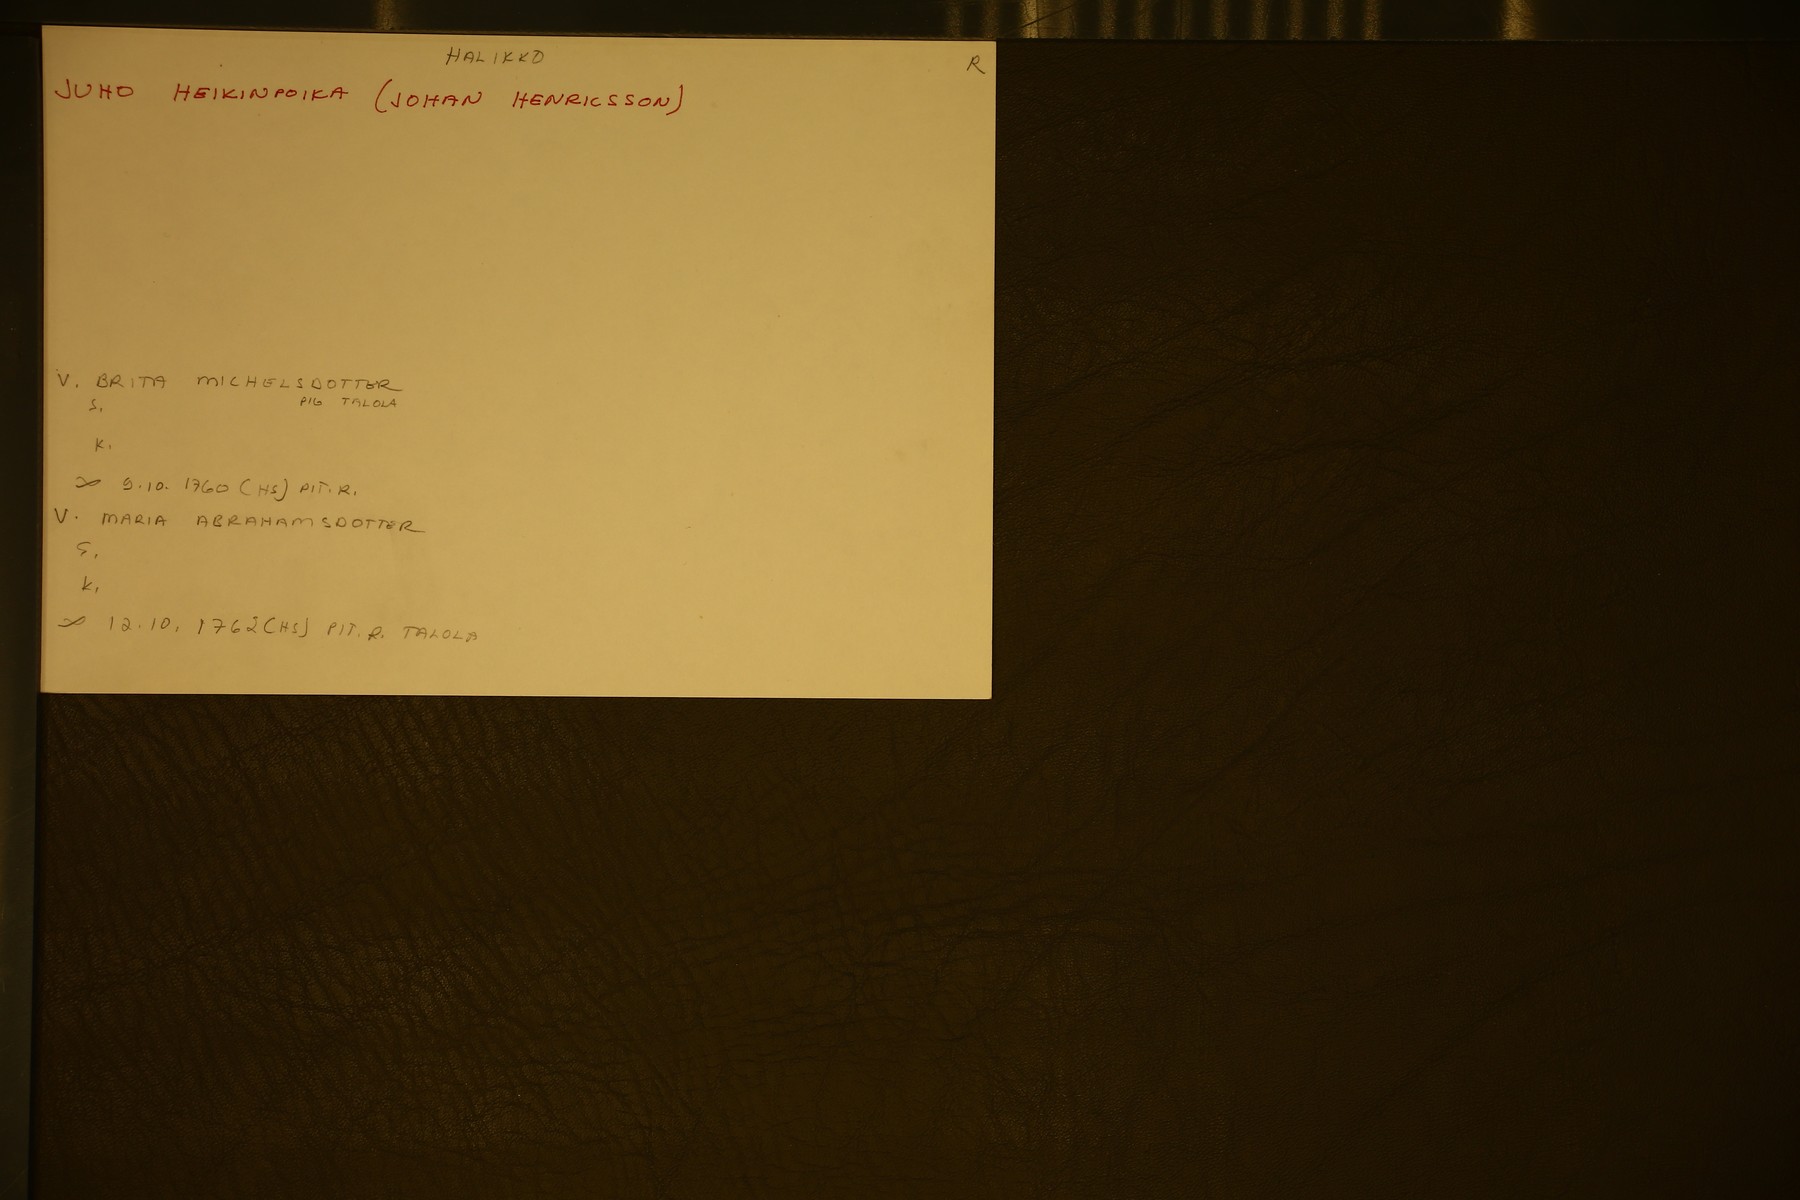 HALIKKO
R
JUHO HEIKINPOIKA (JOHAN HENRICSSON)
V. BRITA MICHELSDOTTER
PIG TALOLA
S.
K.
∞ 9.10. 1760 (HS) PIT. R.
V. MARIA ABRAHAMSDOTTER
S.
K.
∞ 12.10. 1762 (HS) PIT. R. TALOLA